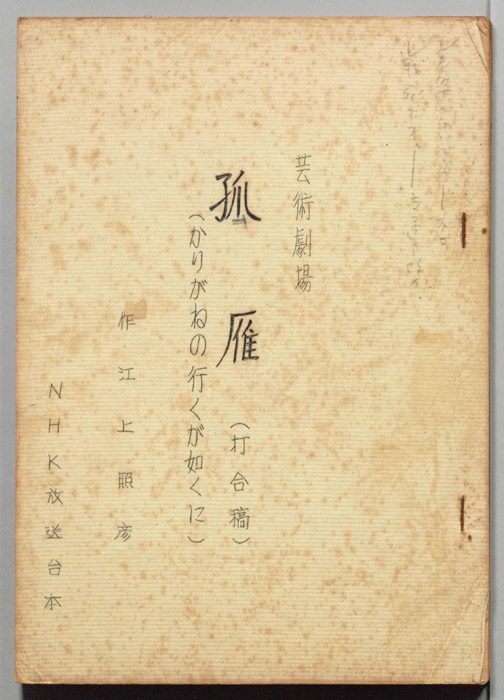 芸術劇場
孤雁（打合稿）
（かりがねの行くが如くに）
作 江上照彦
NHK放送台本